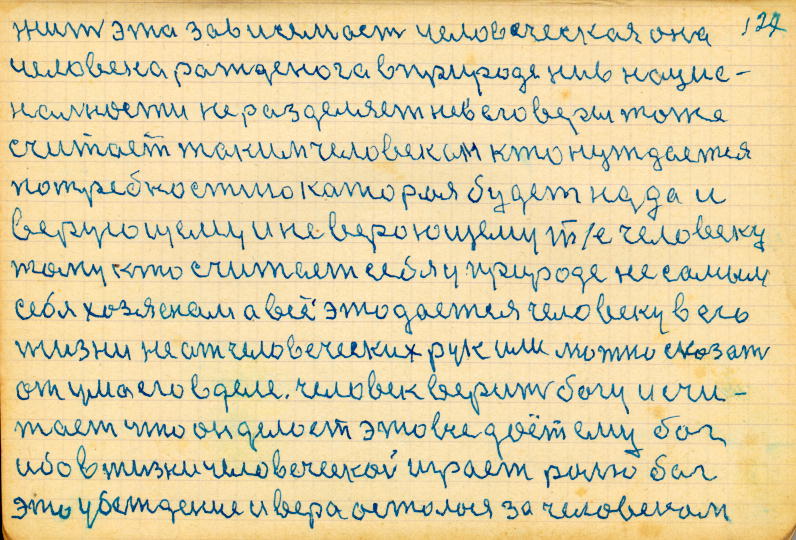 жит эта зависемаст человеческая она 127
человека ражденога в природе ни в нацио-
налности не разделяет не в его веры тоже
считает таким человекам кто нуждается
потребностю каторая будет нада и
верующему и не верующему т/е человеку
тому кто считает себя у природе не самым
себя хозяенам а всё это дается человеку в его
жизни не ат человеческих рук или можно сказат
от ума его в деле. человек верит богу и счи-
тает что он делает это все даёт ему бог
ибо в жизни человеческой играет ролю баг
это убеждение и вера осталося за человекам